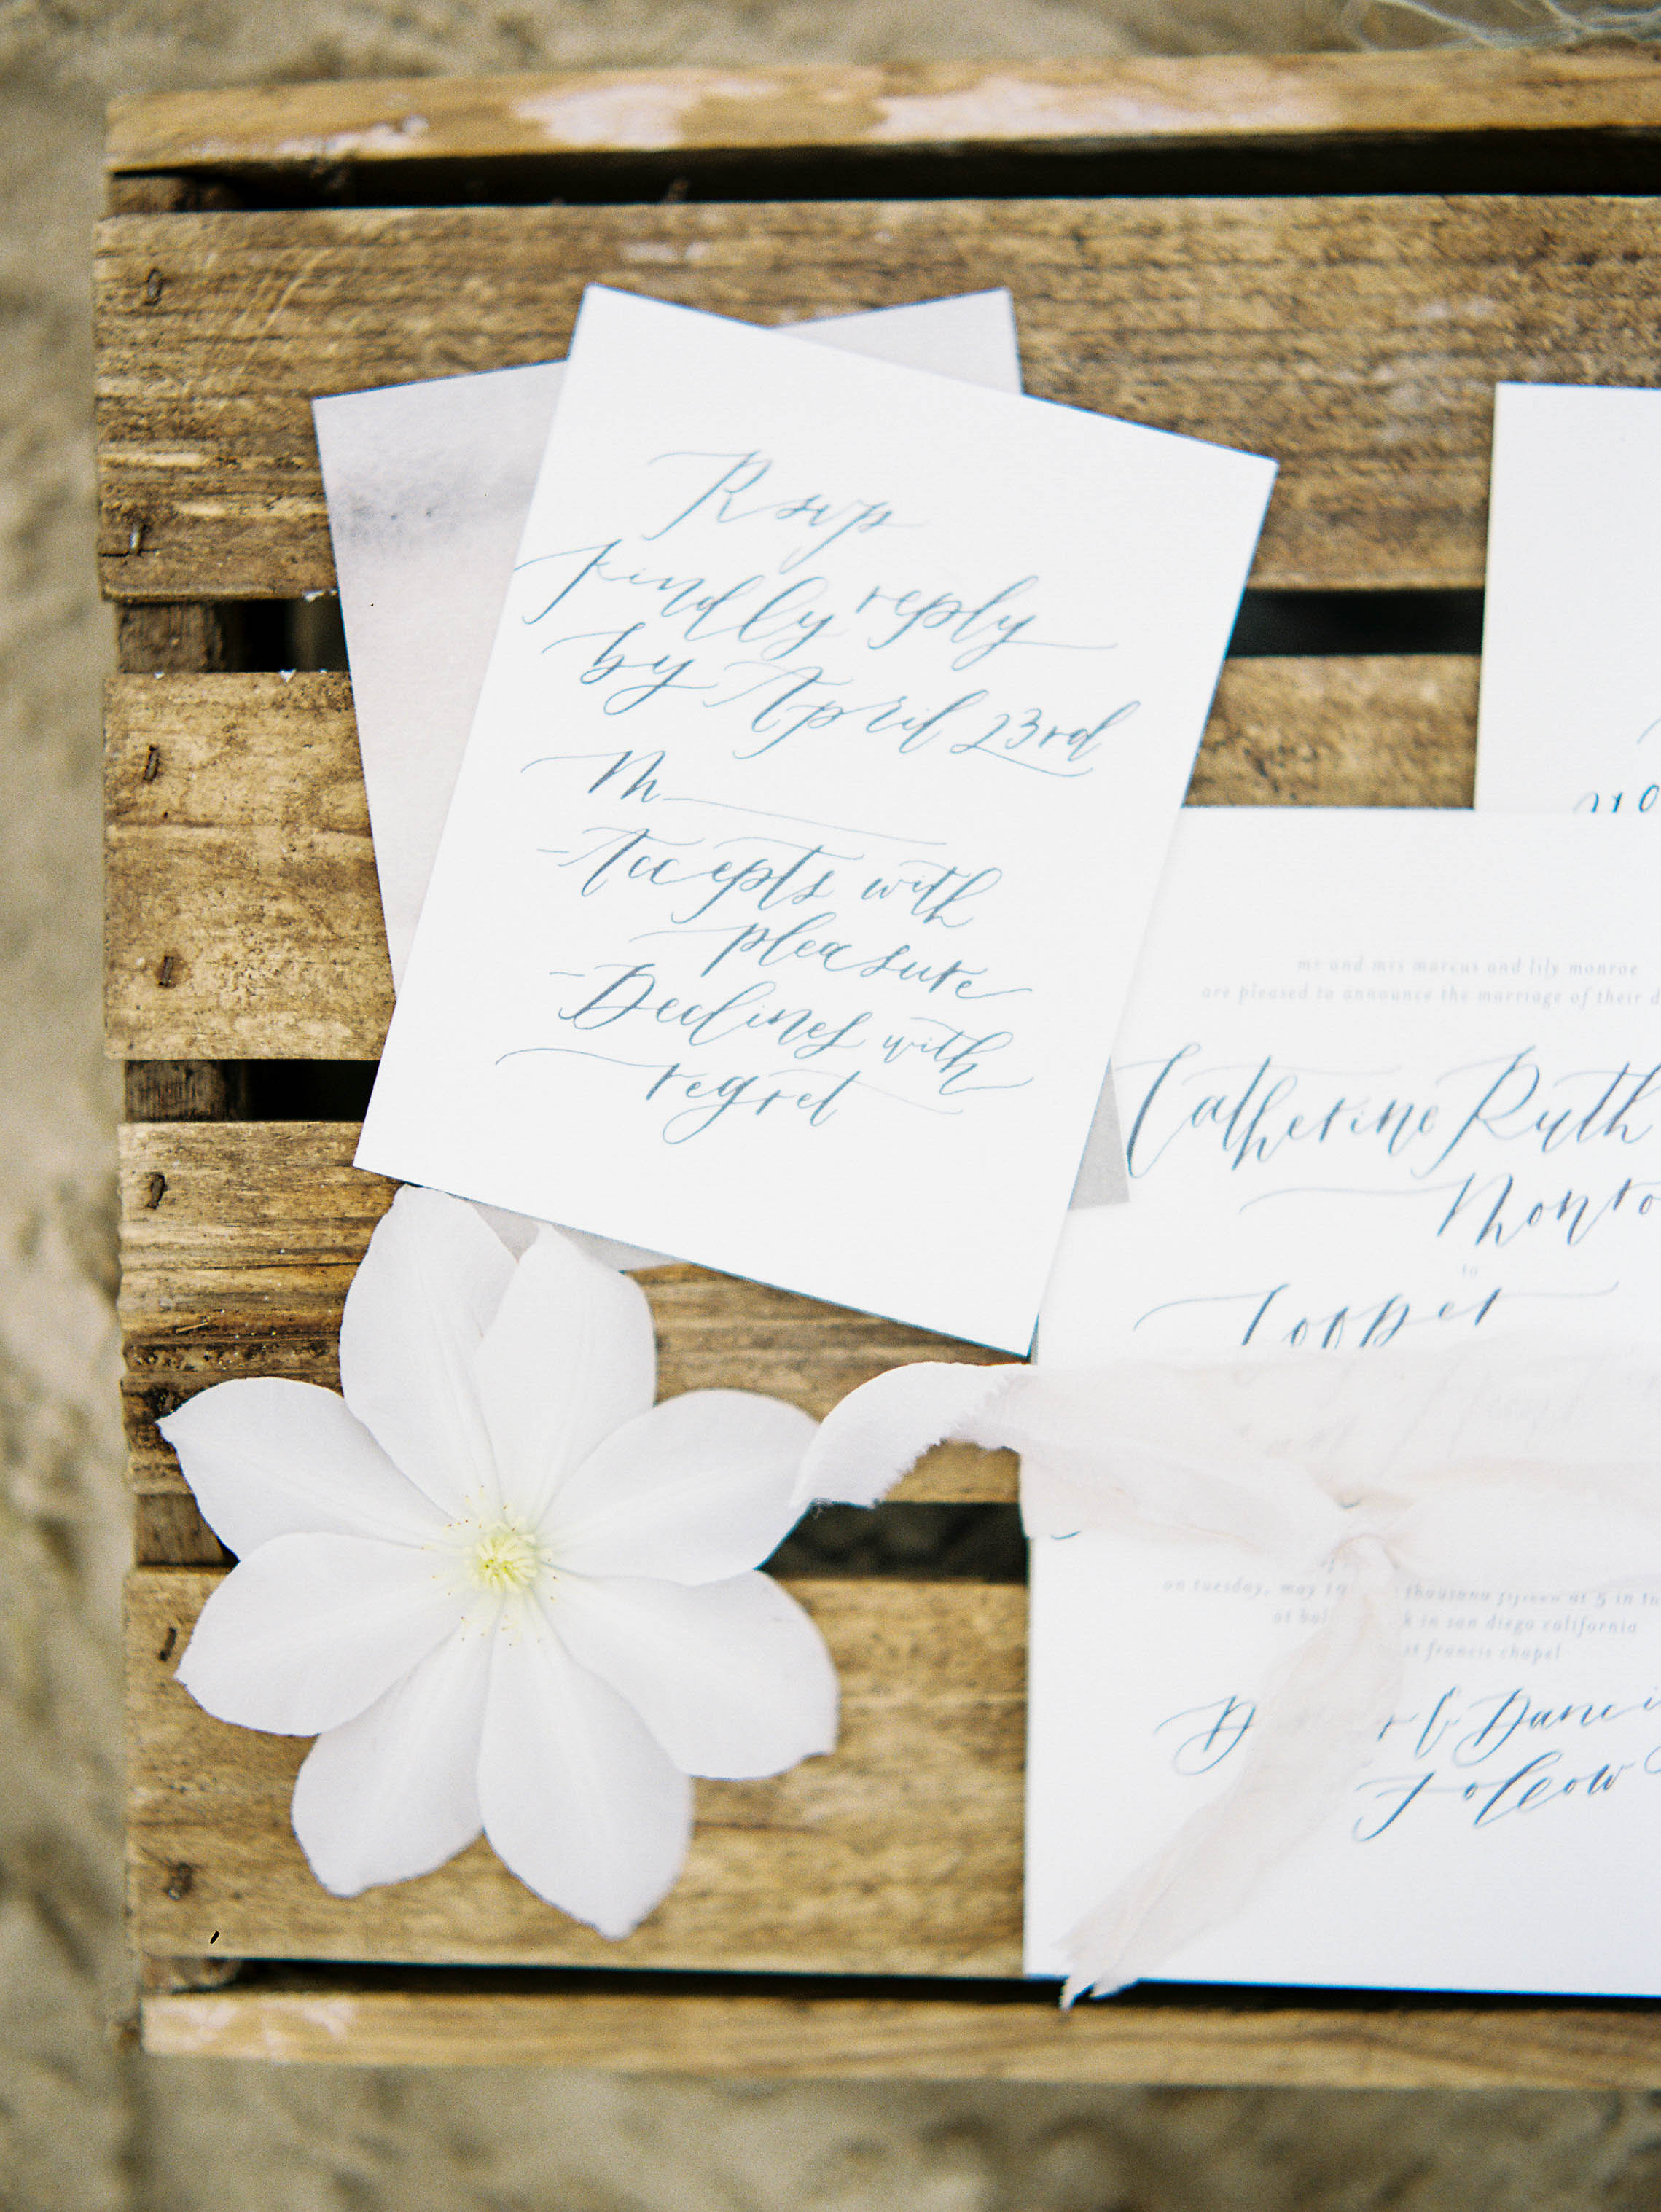 Rsvp
Kindly reply
by April 23rd
M
Accepts with
pleasure
Declines with
regret
mr and mrs marcus and lily monroe
are pleased to announce the marriage of their
Catherine Ruth
to
Cooper
on tuesday, may thousand fifteen at 5 in
at in san diego california
francis chapel
& Dancing
Follow